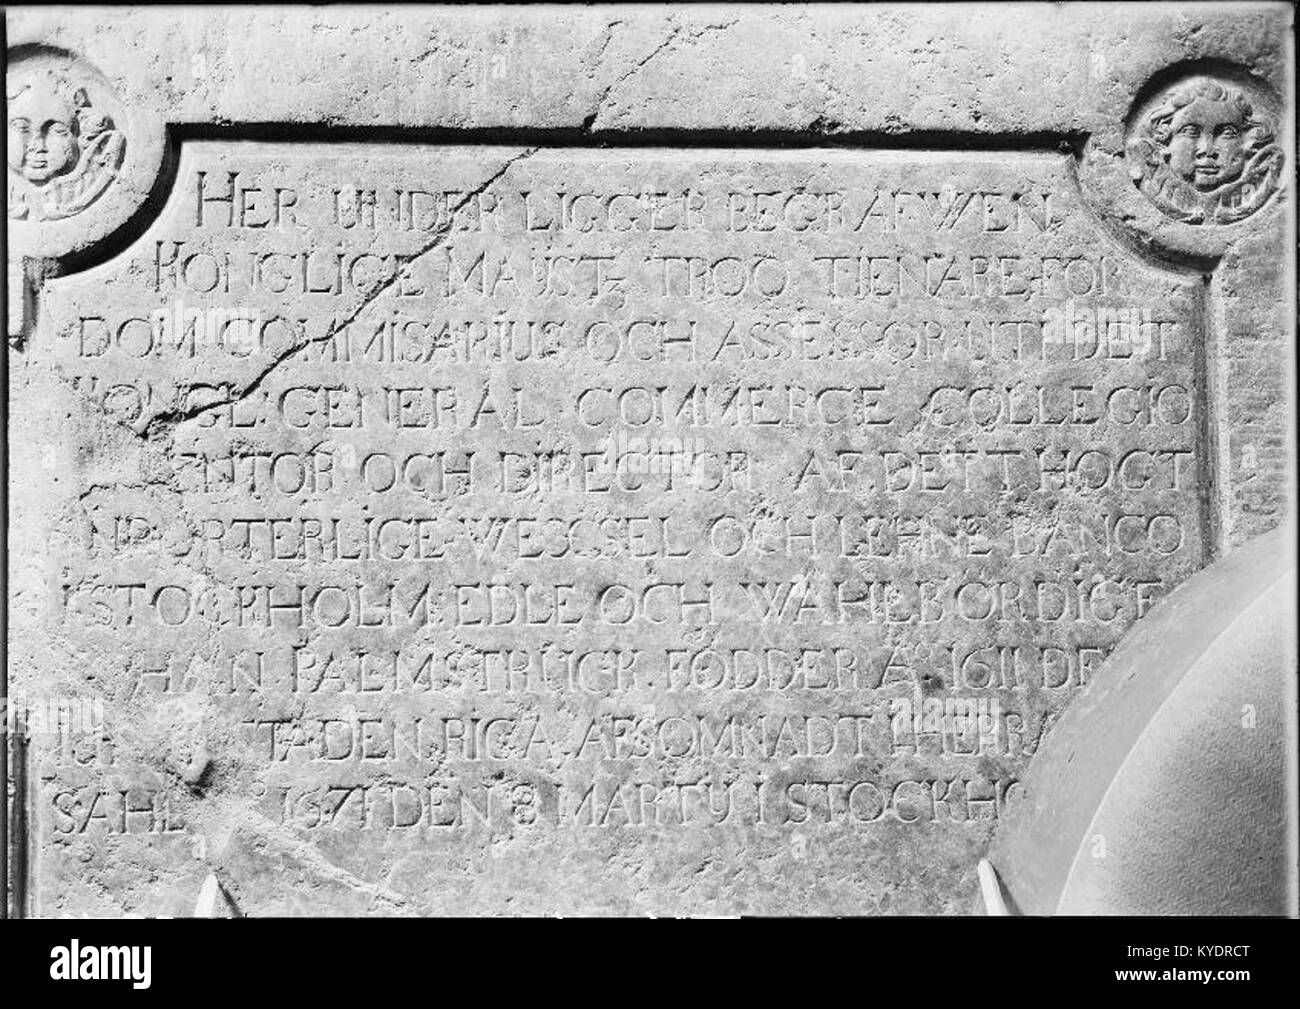 HER UNDER LIGGER BEGRAFWEN
KONGLIGE MAIJST: TROO TIENARE FOR
DOM COMMISARIUS OCH ASSESSOR UTI DETT
KONGL: GENERAL COMMERCE COLLEGIO
OCH DIRECTOR AF DETT HOGT
WESCSEL OCH LEHNE BANCO
I STOCKHOLM EDLE OCH WAHLBORDIGE
HAN PALMSTRUCK FODDER A° 1611 DE
STADEN RIGA AFSOMNADT I HERRA
SAHL 1671 DEN 8 MARTIJ I STOCKHO
alamy
Image ID: KYDRCT
www.alamy.com